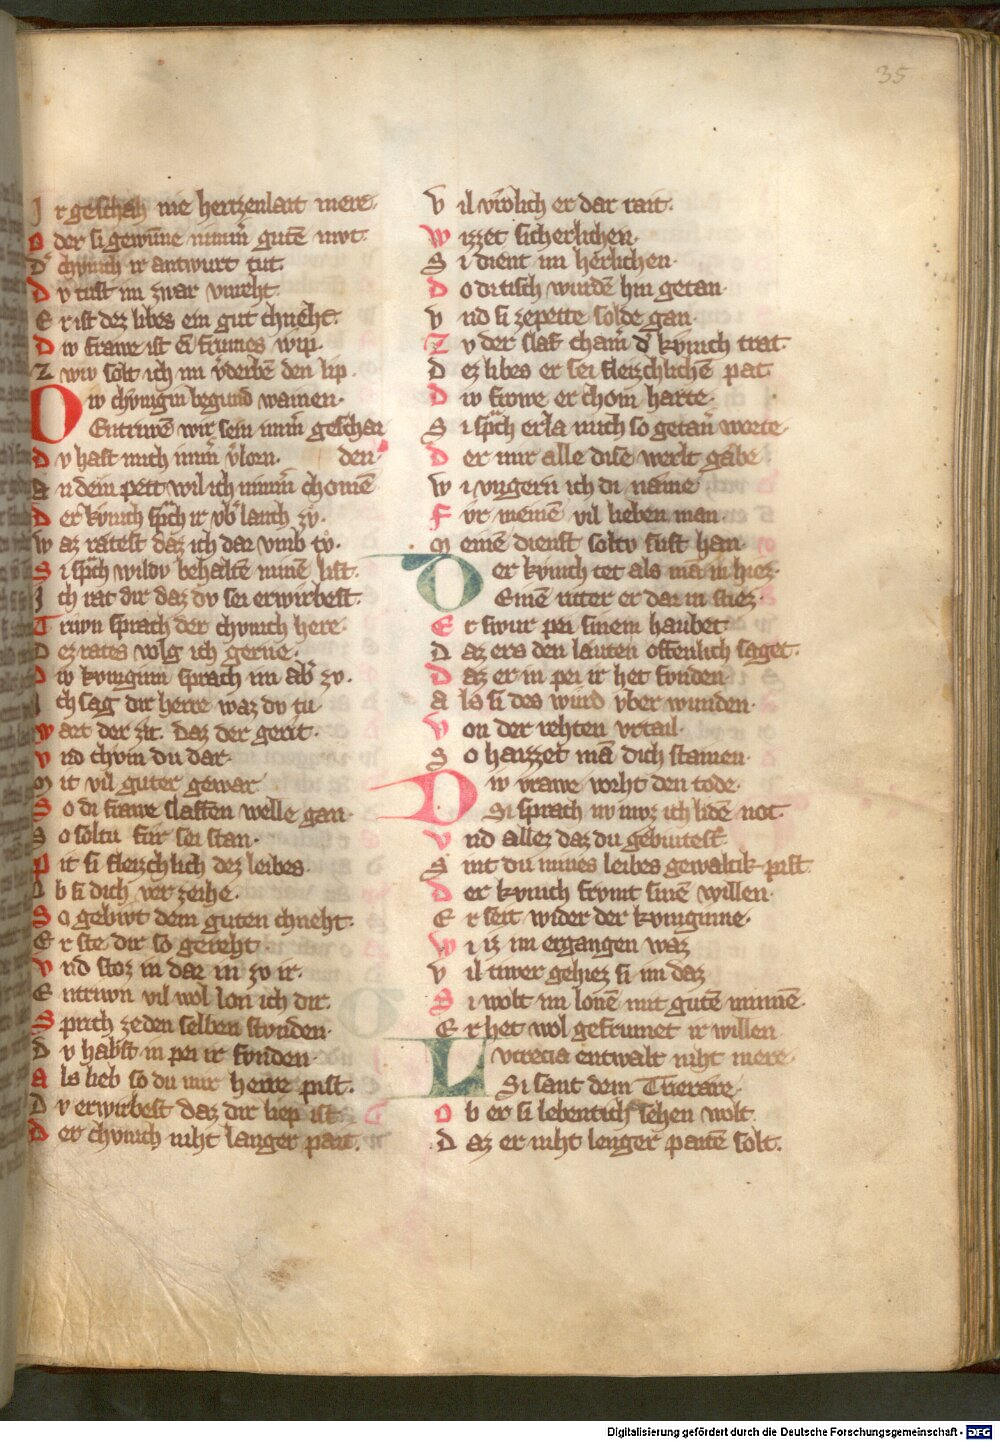 35
J r geschah nie hertzenlait mere·
O der si gewūne nimm̄ gutē mvt·
Dͬ chvnich ir antwurt tut.
D v tust im zwar vnreht·
E r ist dez libes ein gut chneht·
D iv frawe ist ei frumes wip·
Z wiv solt ich im v̄derbē den lip·
D iv chvnigin begund wainen·
Entriwē wir sein nimm̄ geschai
D v hast mich imm̄ v̄lorn· den·
A n dem pett wil ich nimm̄ chomē
D er kvnich sp̄ch ir vb̄ lauch zv·
W az ratest daz ich dar vmb tv·
S i sp̄ch wildv behaltē minē list·
J ch rat dir daz dv sei erwirbest·
T riwn sprach der chvnich here·
D ez rates volg ich gerne·
D iv kvniginn sprach im ab̄ zv·
J ch sag dir herre waz dv tu
W art der zit· Daz der gerit·
V nd chvm du dar·
M it vil guter gewar
S o di frawe slaffen welle gan·
S o soltu fur sei stan·
P it si fleizchlich dez leibes
O b si dich verzeihe·
S o gebivt dem guten chneht·
E r ste dir so gereht
V nd stoz in dar in zv ir·
E ntriwn vil wol lon ich dir·
S prich zeden selben stvnden·
D v habst in pei ir fvnden·
A ls lieb so du mir herre pist·
D v erwirbest daz dir liep ist
D er chvnich niht langer pait·
V il vrolich er dar rait·
W izzet sicherlichen·
S i dient im herlichen·
D o di tisch wurdē hin getan·
V nd si zepette solde gan·
Z v der slaf cham̄ dͬ kvnich trat
D ez libes er sei fleizchlichē pat
D iv frowe er chom harte·
S i sp̄ch erla mich so getan̄ worte·
D er mir alle dise werlt gabe
W i vngern ich di name
F vr meinē vil lieben man·
M einē dienst soltv sust han
D er kvnich tet als mā in hiez·
Einē ritter er dar in stiez·
E r swur pei sinem haubet
D az ers den lauten offenlich saget·
D az er in pei ir het fvnden
A ls si des wurd vber wunden·
V on der rehten vrtail·
S o haizzet mā dich stainen·
D iv vrawe vorht den tode·
Si sprach nv mvz ich lidē not·
V nd allez daz du gebiutest
S int du mines leibes gewaltik pist
D er kvnich frvmt sinē willen·
E r seit wider der kvniginne·
W i iz im ergangen waz
V il tiwer gehiez si im daz
S i wolt im lonē mit gutē minnē·
E r het wol gefrumet ir willen
L vcrecia entwalt niht mere·
Si sant dem Trierare·
O b er si lebentich sehen wolt
D az er niht lenger paitē solt·
Digitalisierung gefördert durch die Deutsche Forschungsgemeinschaft - DFG